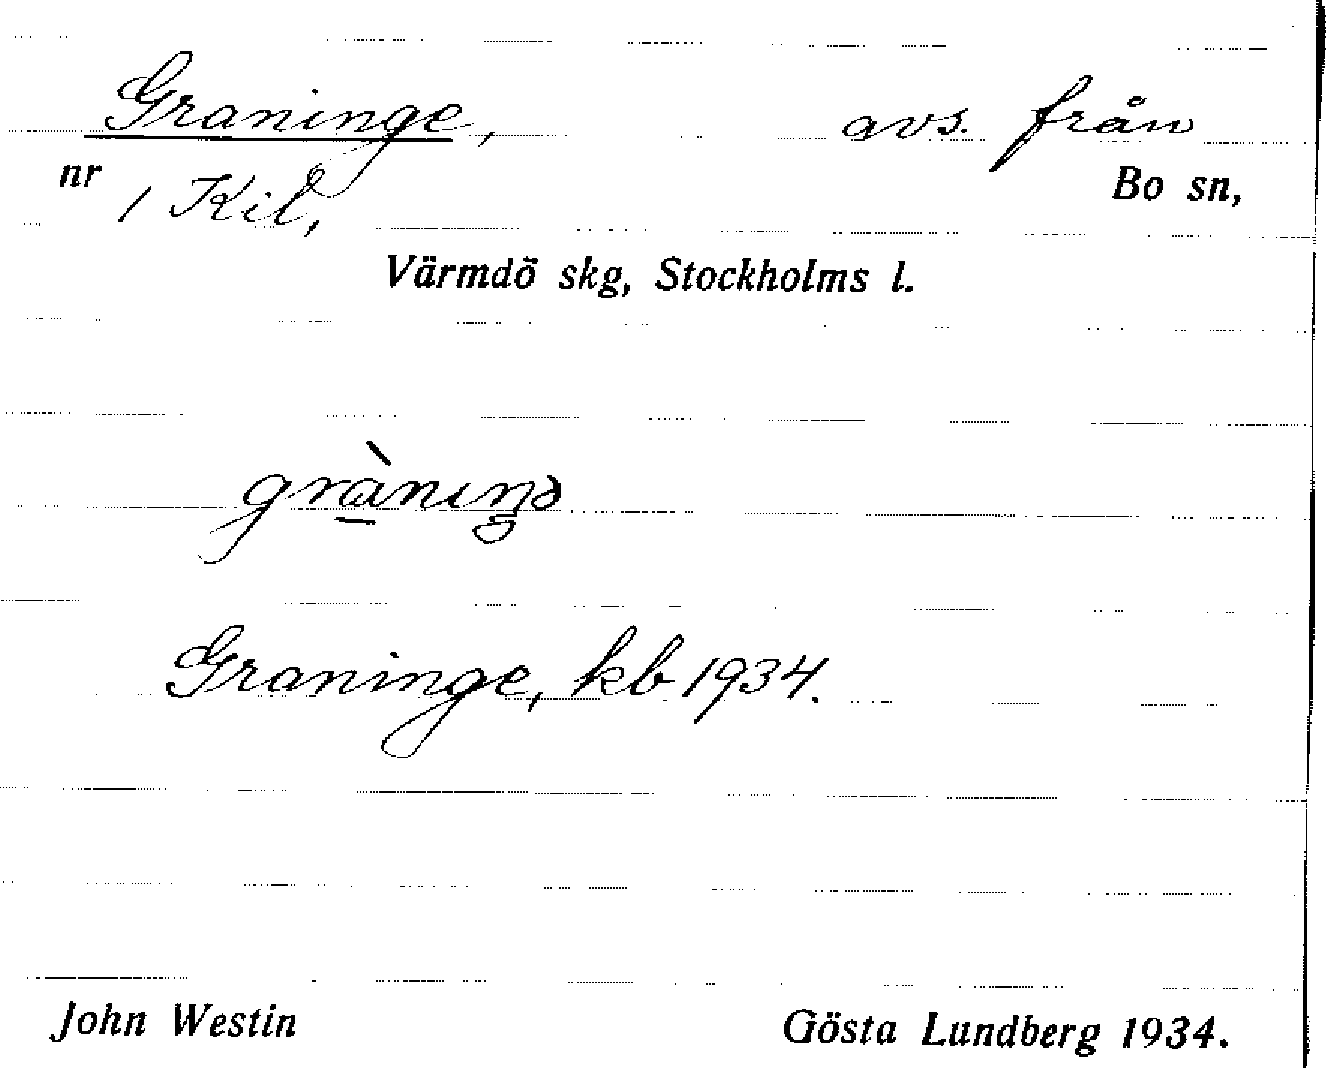 Graninge, avs. från
nr 1 Kil, Bo sn,
Värmdö skg, Stockholms l.
grà̱nıŋə
Graninge, kb 1934.
John Westin Gösta Lundberg 1934.